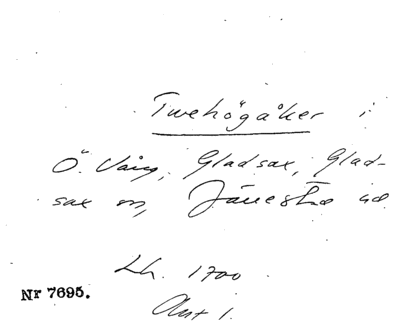 Twehögåker i
Ö. Vång, Gladsax, Glad-
sax sn, Järrestad hd
Lh. 1700
Nr 7695.
Akt 1.